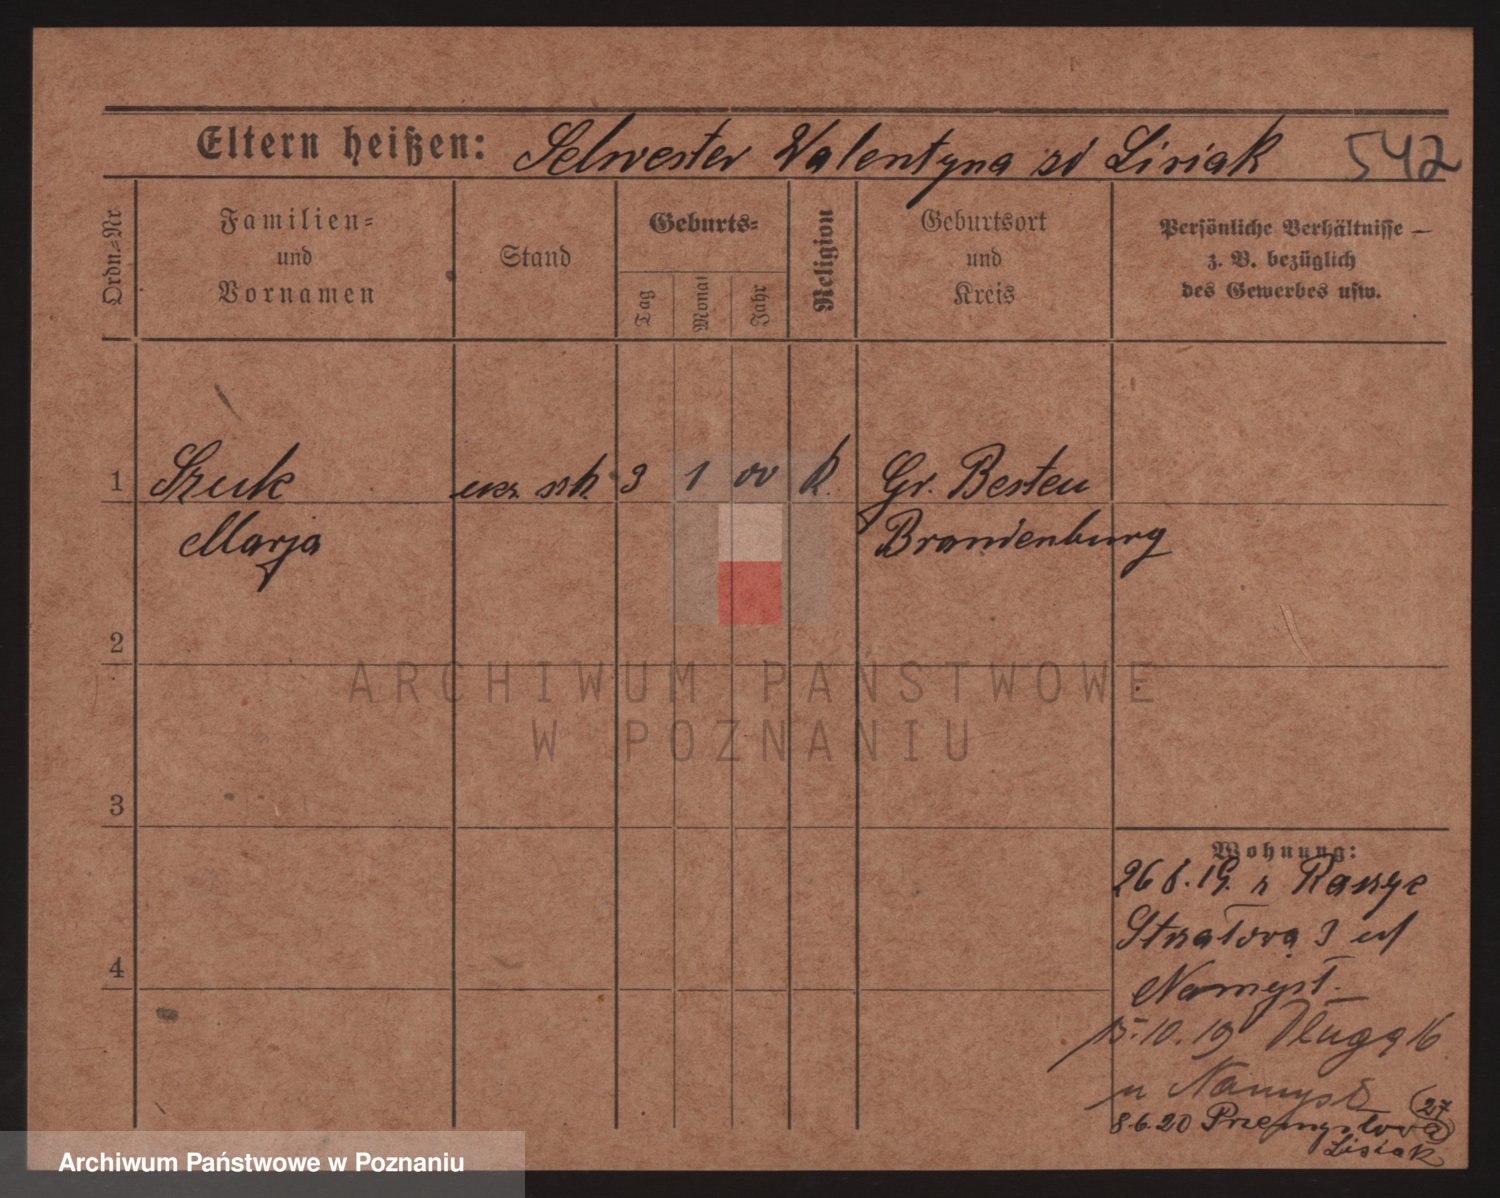 Eltern heißen: Selwester Walentyna zd Lisiak 542
Ordn.-Nr
Familien-
und
Vornamen
Stand
Geburts-
Tag
Monat
Jahr
Religion
Geburtsort
und
Kreis
Persönliche Verhältnisse —
z. B. bezüglich
des Gewerbes usw.
1 Szuk ucz. szk. 3 1 00 k. Gr. Besten
Marja Brandenburg
2
ARCHIWUM PAŃSTWOWE
W POZNANIU
3
Wohnung:
26 8. 19. z Raszyc
3
4
Namyśl.
15. 10. 19 Długa 16
u Namysł
8. 6. 20 Przemysłowa 27
Lisiak
Archiwum Państwowe w Poznaniu